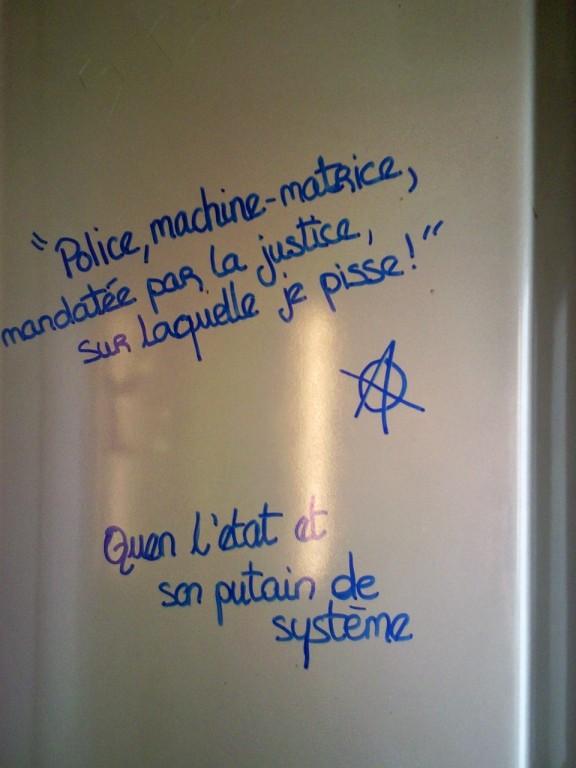 "Police, machine-matrice,
mandatée par la justice,
sur laquelle je pisse!"
Quen l'état et
son putain de
système